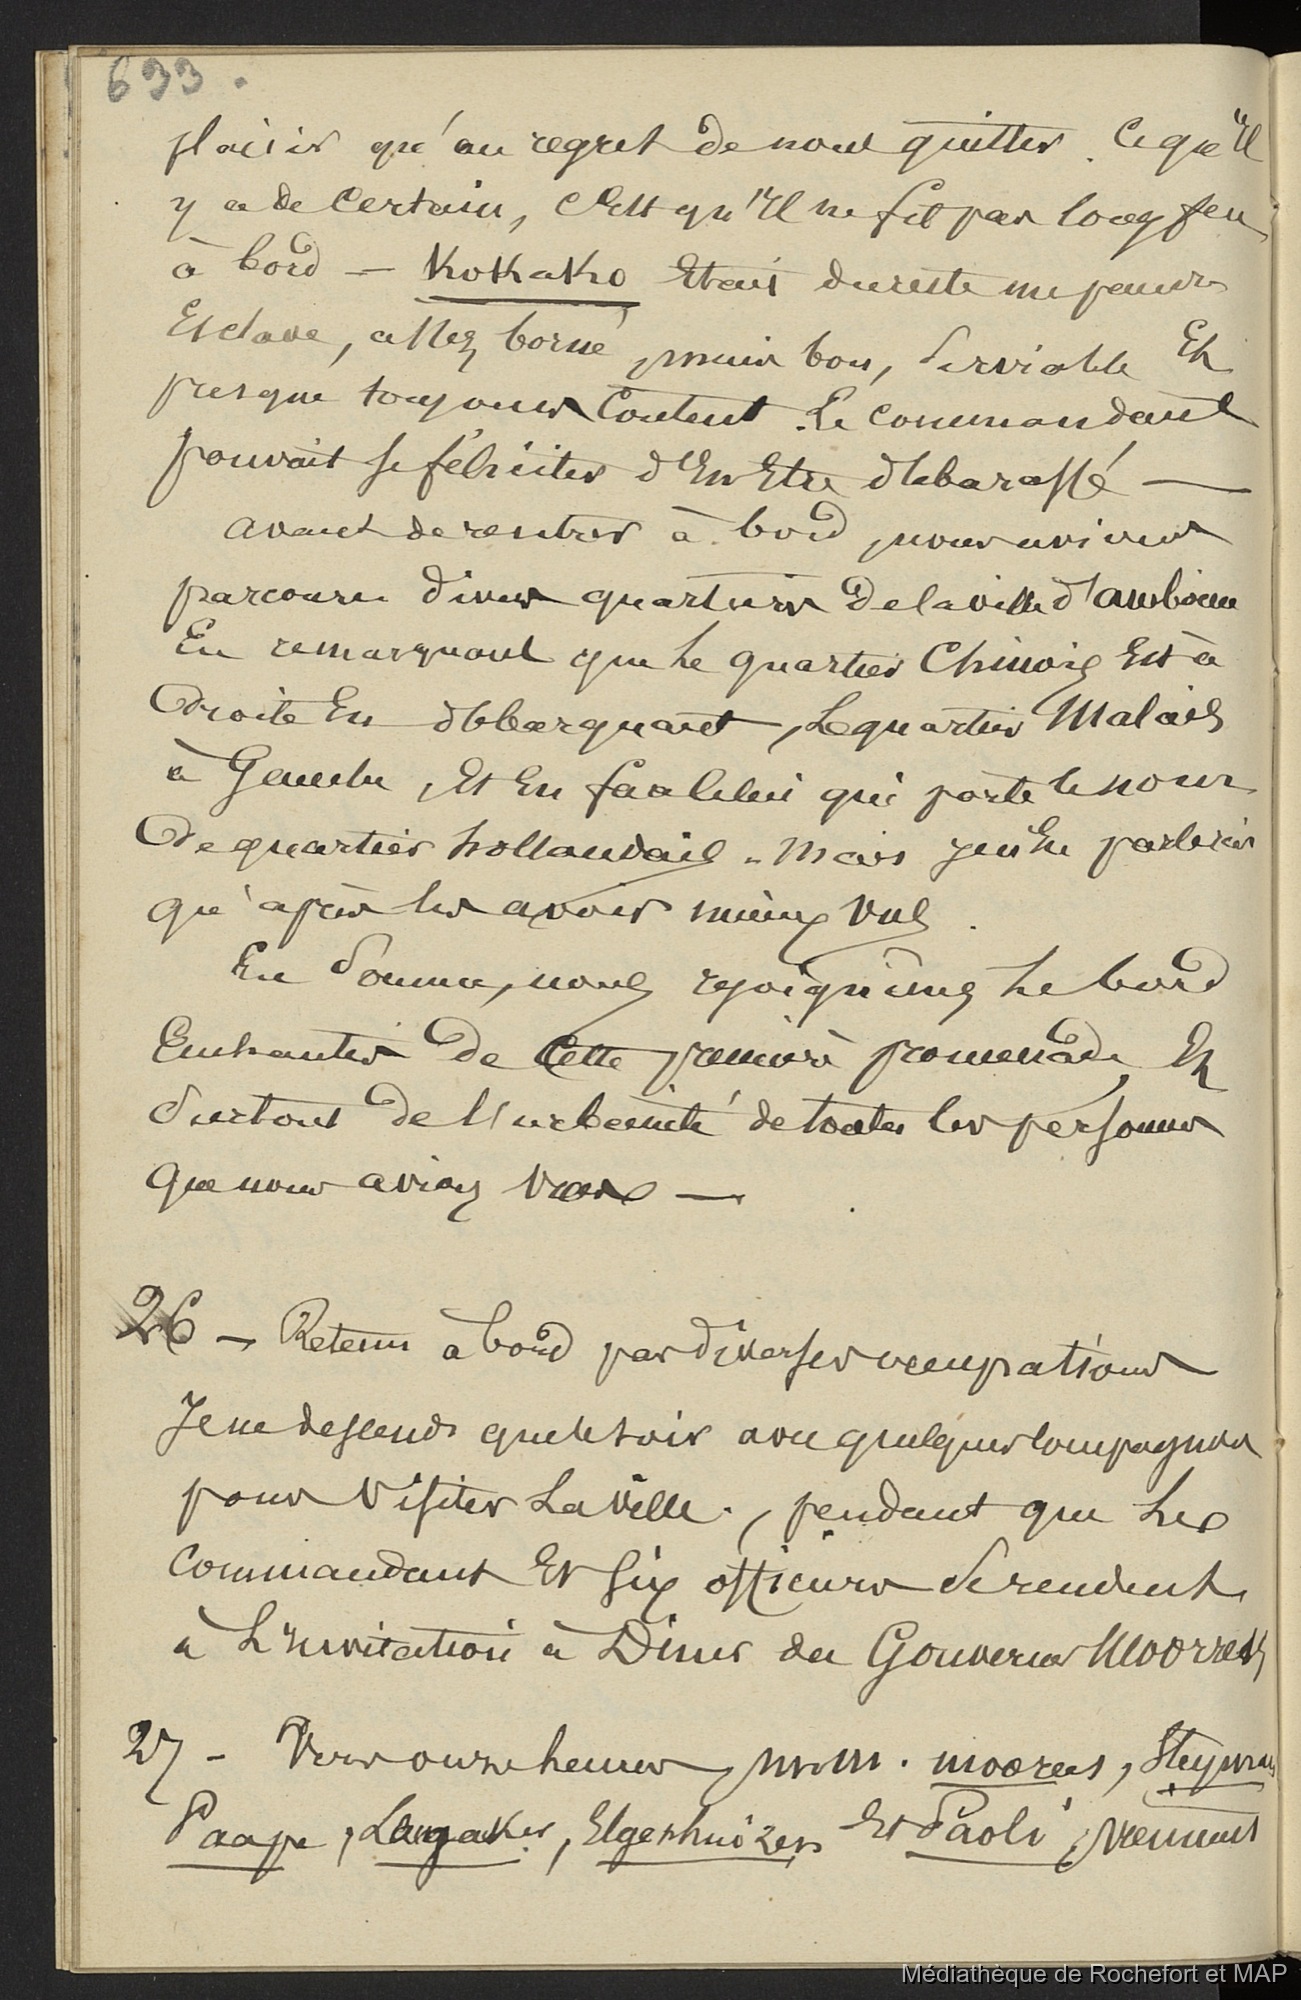 633.
plaisir qu'au regret de nous quitter. Ce qu'Il
y a de Certain, C'Est qu'Il ne fit pas long feu
à bord — Kokako Etait du reste un pauvre
Esclave, assez borné, mais bon, Serviable Et
presque toujours Content. Le Commandant
pouvait se féliciter d'En Etre débarassé —
avant de rentrer à bord, nous avions
parcouru divers quartiers de la ville d'amboine
En remarquant que Le quartier Chinois Est à
Droite En débarquant, Le quartier Malais
à Gauche, Et En face celui qui porte le nom
De quartier hollandais. Mais je n'En parlerai
qu'après les avoir mieux vus.
En Somme, nous rejoignîmes Le bord
Enchantés De Cette première promenade, Et
Surtout De l'urbanité de toutes les personnes
que nous avions vues —
26 — Retenu à bord par diverses occupations
Je ne descends que le soir avec quelques Compagnons
pour visiter La ville, pendant que Le
Commandant Et Six officiers Se rendent
à L'Invitation à Diner du Gouverneur Moorrees
27 — Vers onze heures, m.m. moorees, Steymans
Paape, Elgershuizen Et Paoli, viennent
Médiathèque de Rochefort et MAP